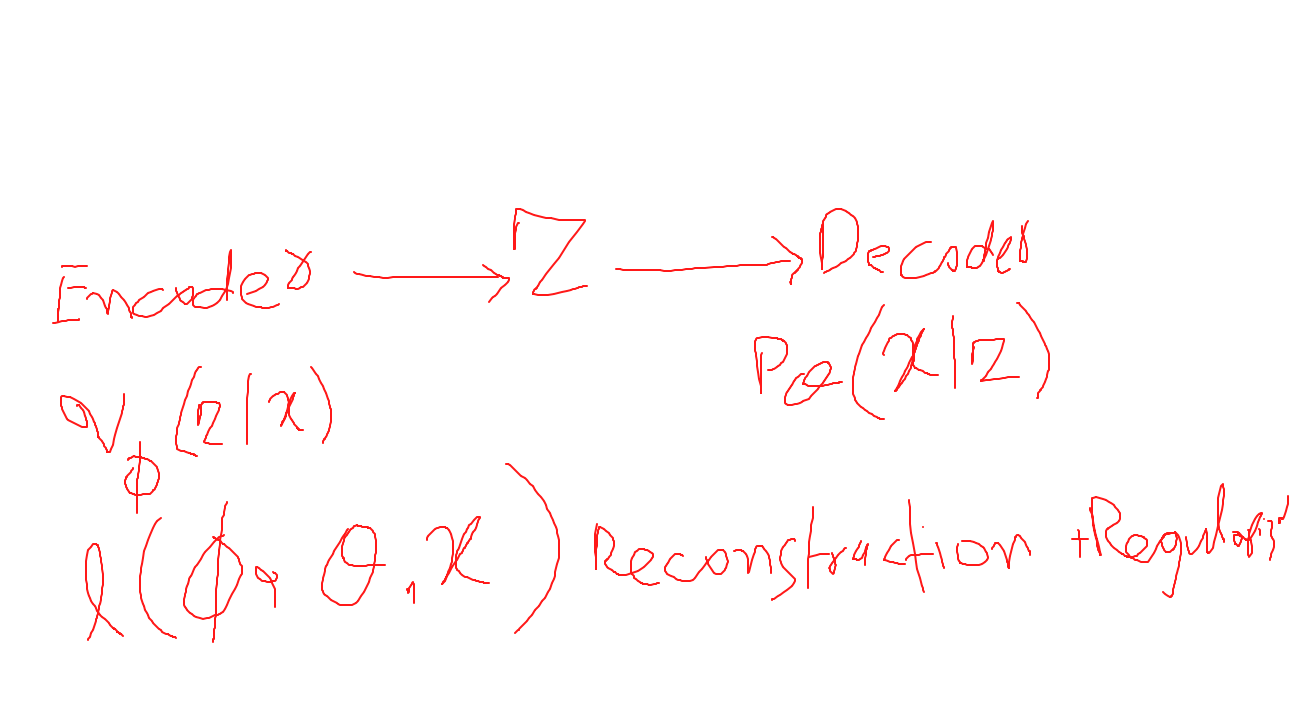 Encoder → Z → Decoder
qϕ(z|x) Pθ(x|z)
l(ϕ, θ, x) Reconstraction +Regulariz